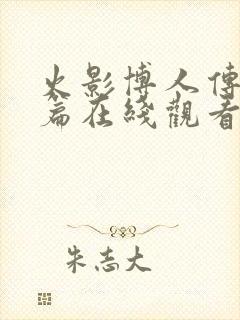 火影博人傳
篇在綫觀看
朱志大